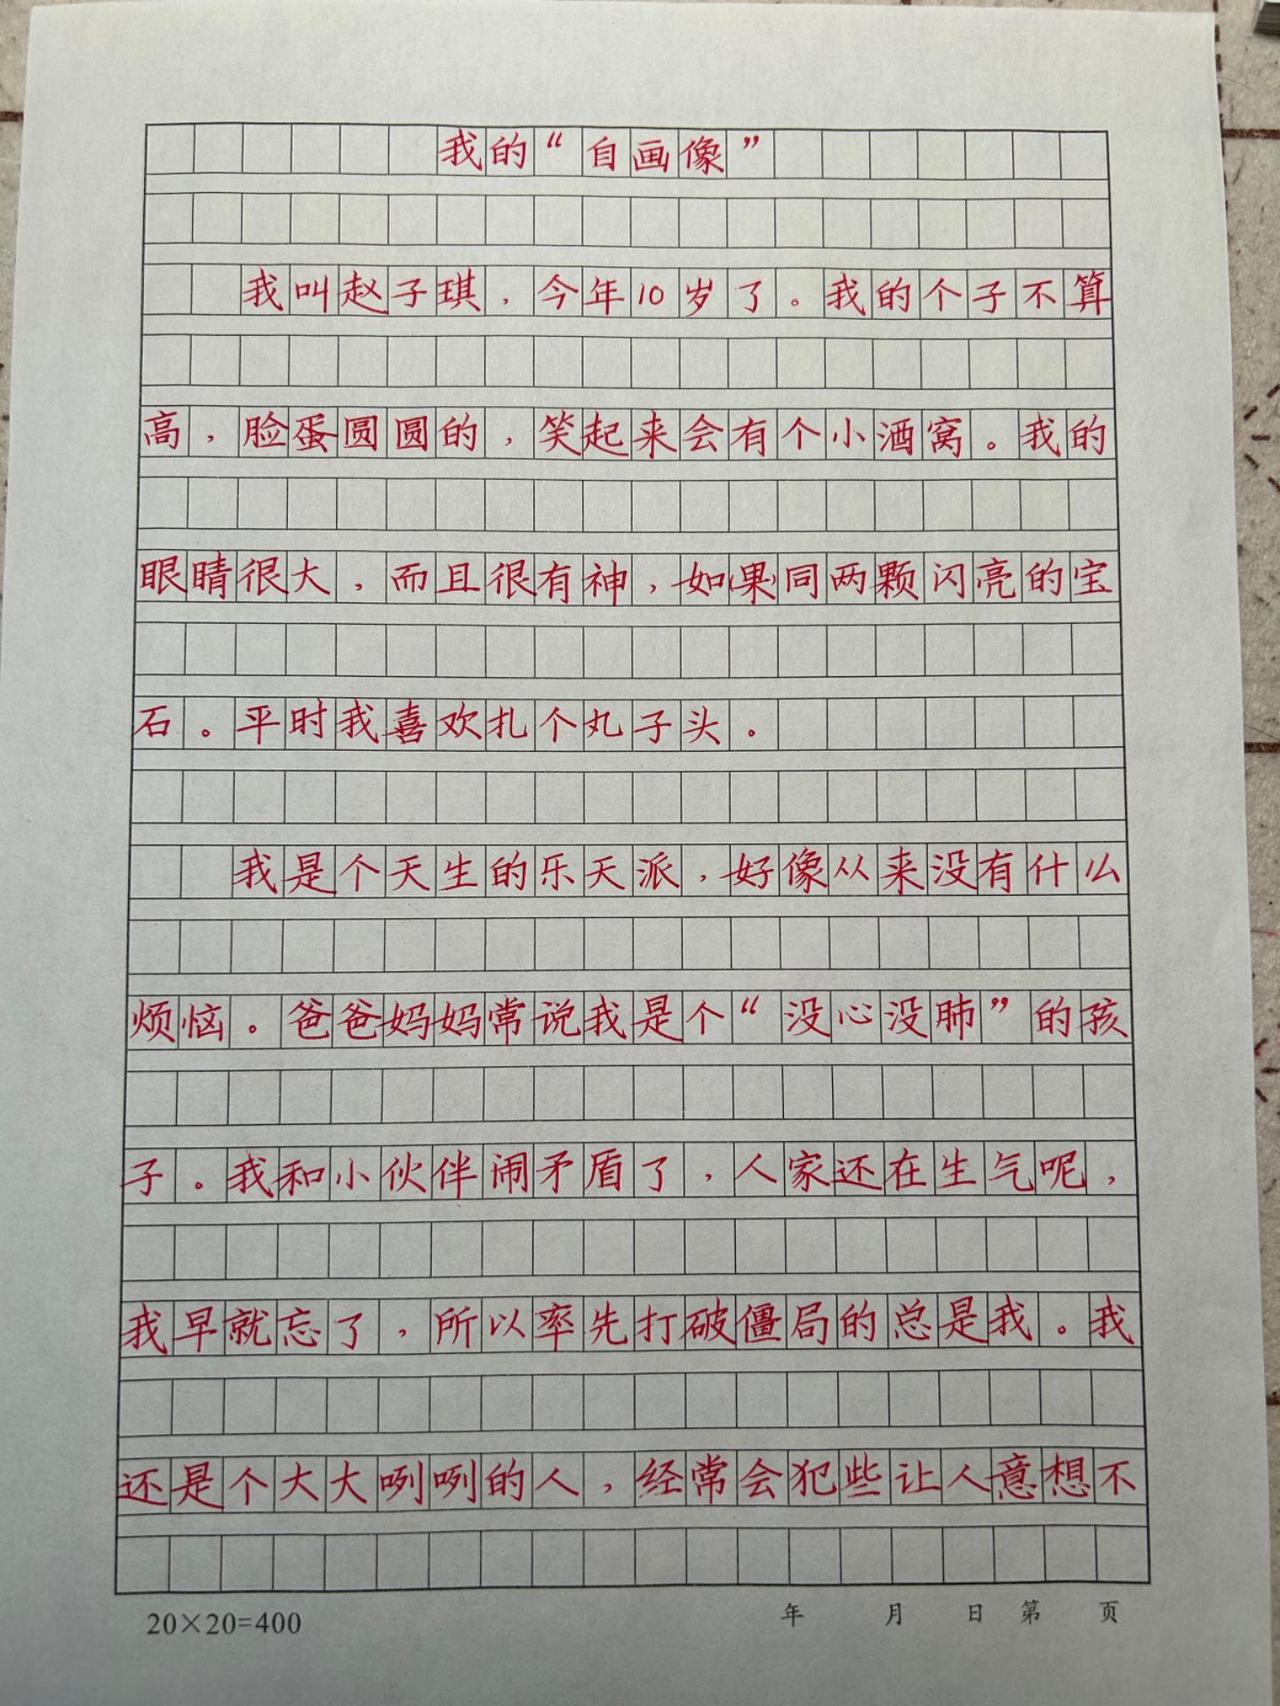 我的“自画像”
我叫赵子琪，今年10岁了。我的个子不算
高，脸蛋圆圆的，笑起来会有个小酒窝。我的
眼睛很大，而且很有神，如(果)同两颗闪亮的宝
石。平时我喜欢扎个丸子头。
我是个天生的乐天派，好像从来没有什么
烦恼。爸爸妈妈常说我是个“没心没肺”的孩
子。我和小伙伴闹矛盾了，人家还在生气呢，
我早就忘了，所以率先打破僵局的总是我。我
还是个大大咧咧的人，经常会犯些让人意想不
20×20=400 年 月 日 第 页